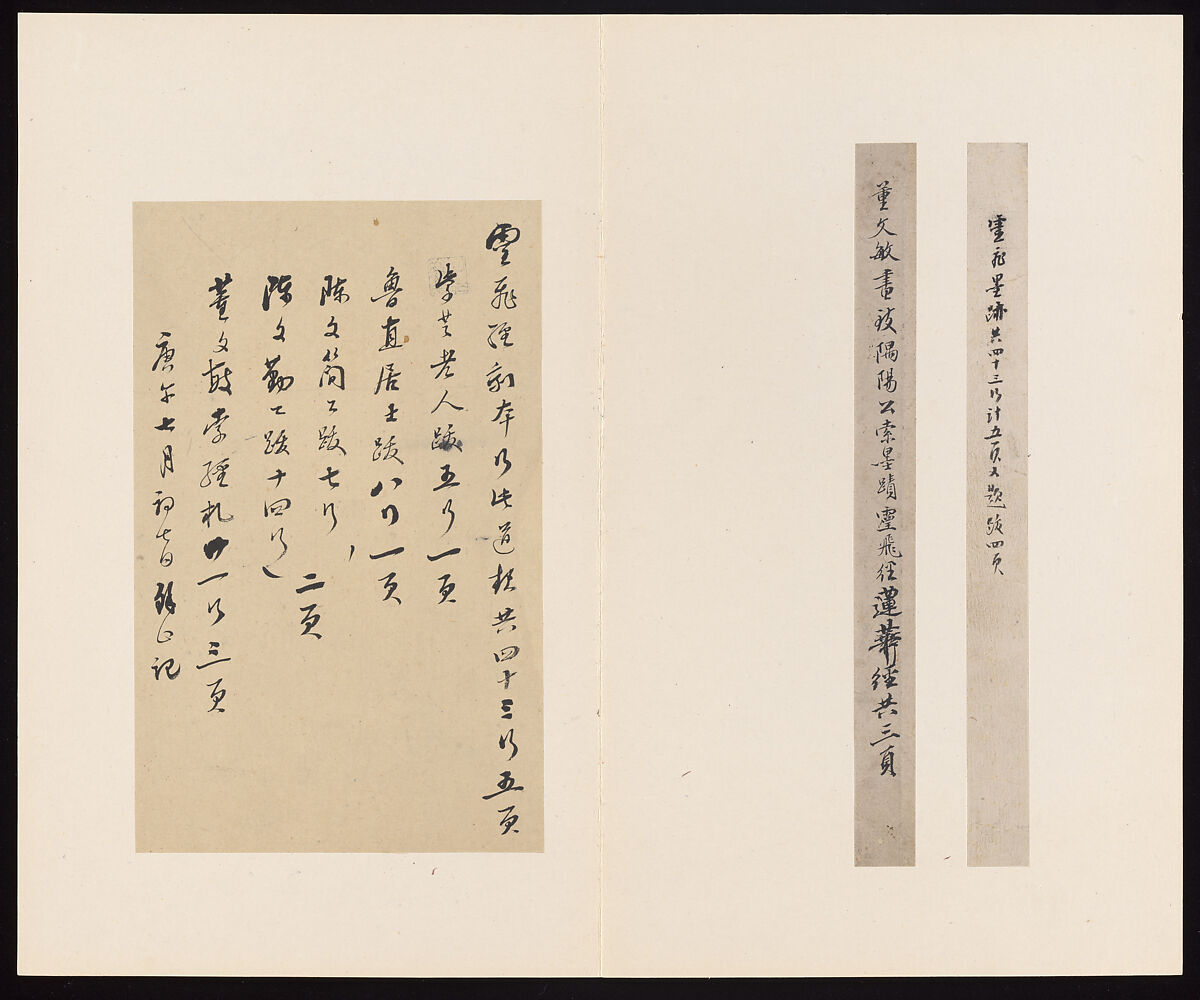 靈飛墨跡共四十三行計五頁又題跋四頁
董文敏書致隅陽公索墨蹟靈飛經蓮華經共三頁
靈飛經刻本行 道 共四十三行五頁
學 老人跋五行一頁
魯直居士跋八行一頁
陳文簡公跋七行
陳文勤公跋十四行
二頁
董文敏索經札 一行三頁
庚午七月初 日 記